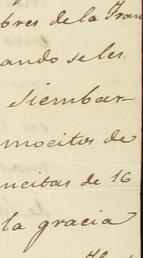 bres de la Fran
ando se les
siembar
mocitos de
ncitas de 16
la gracia